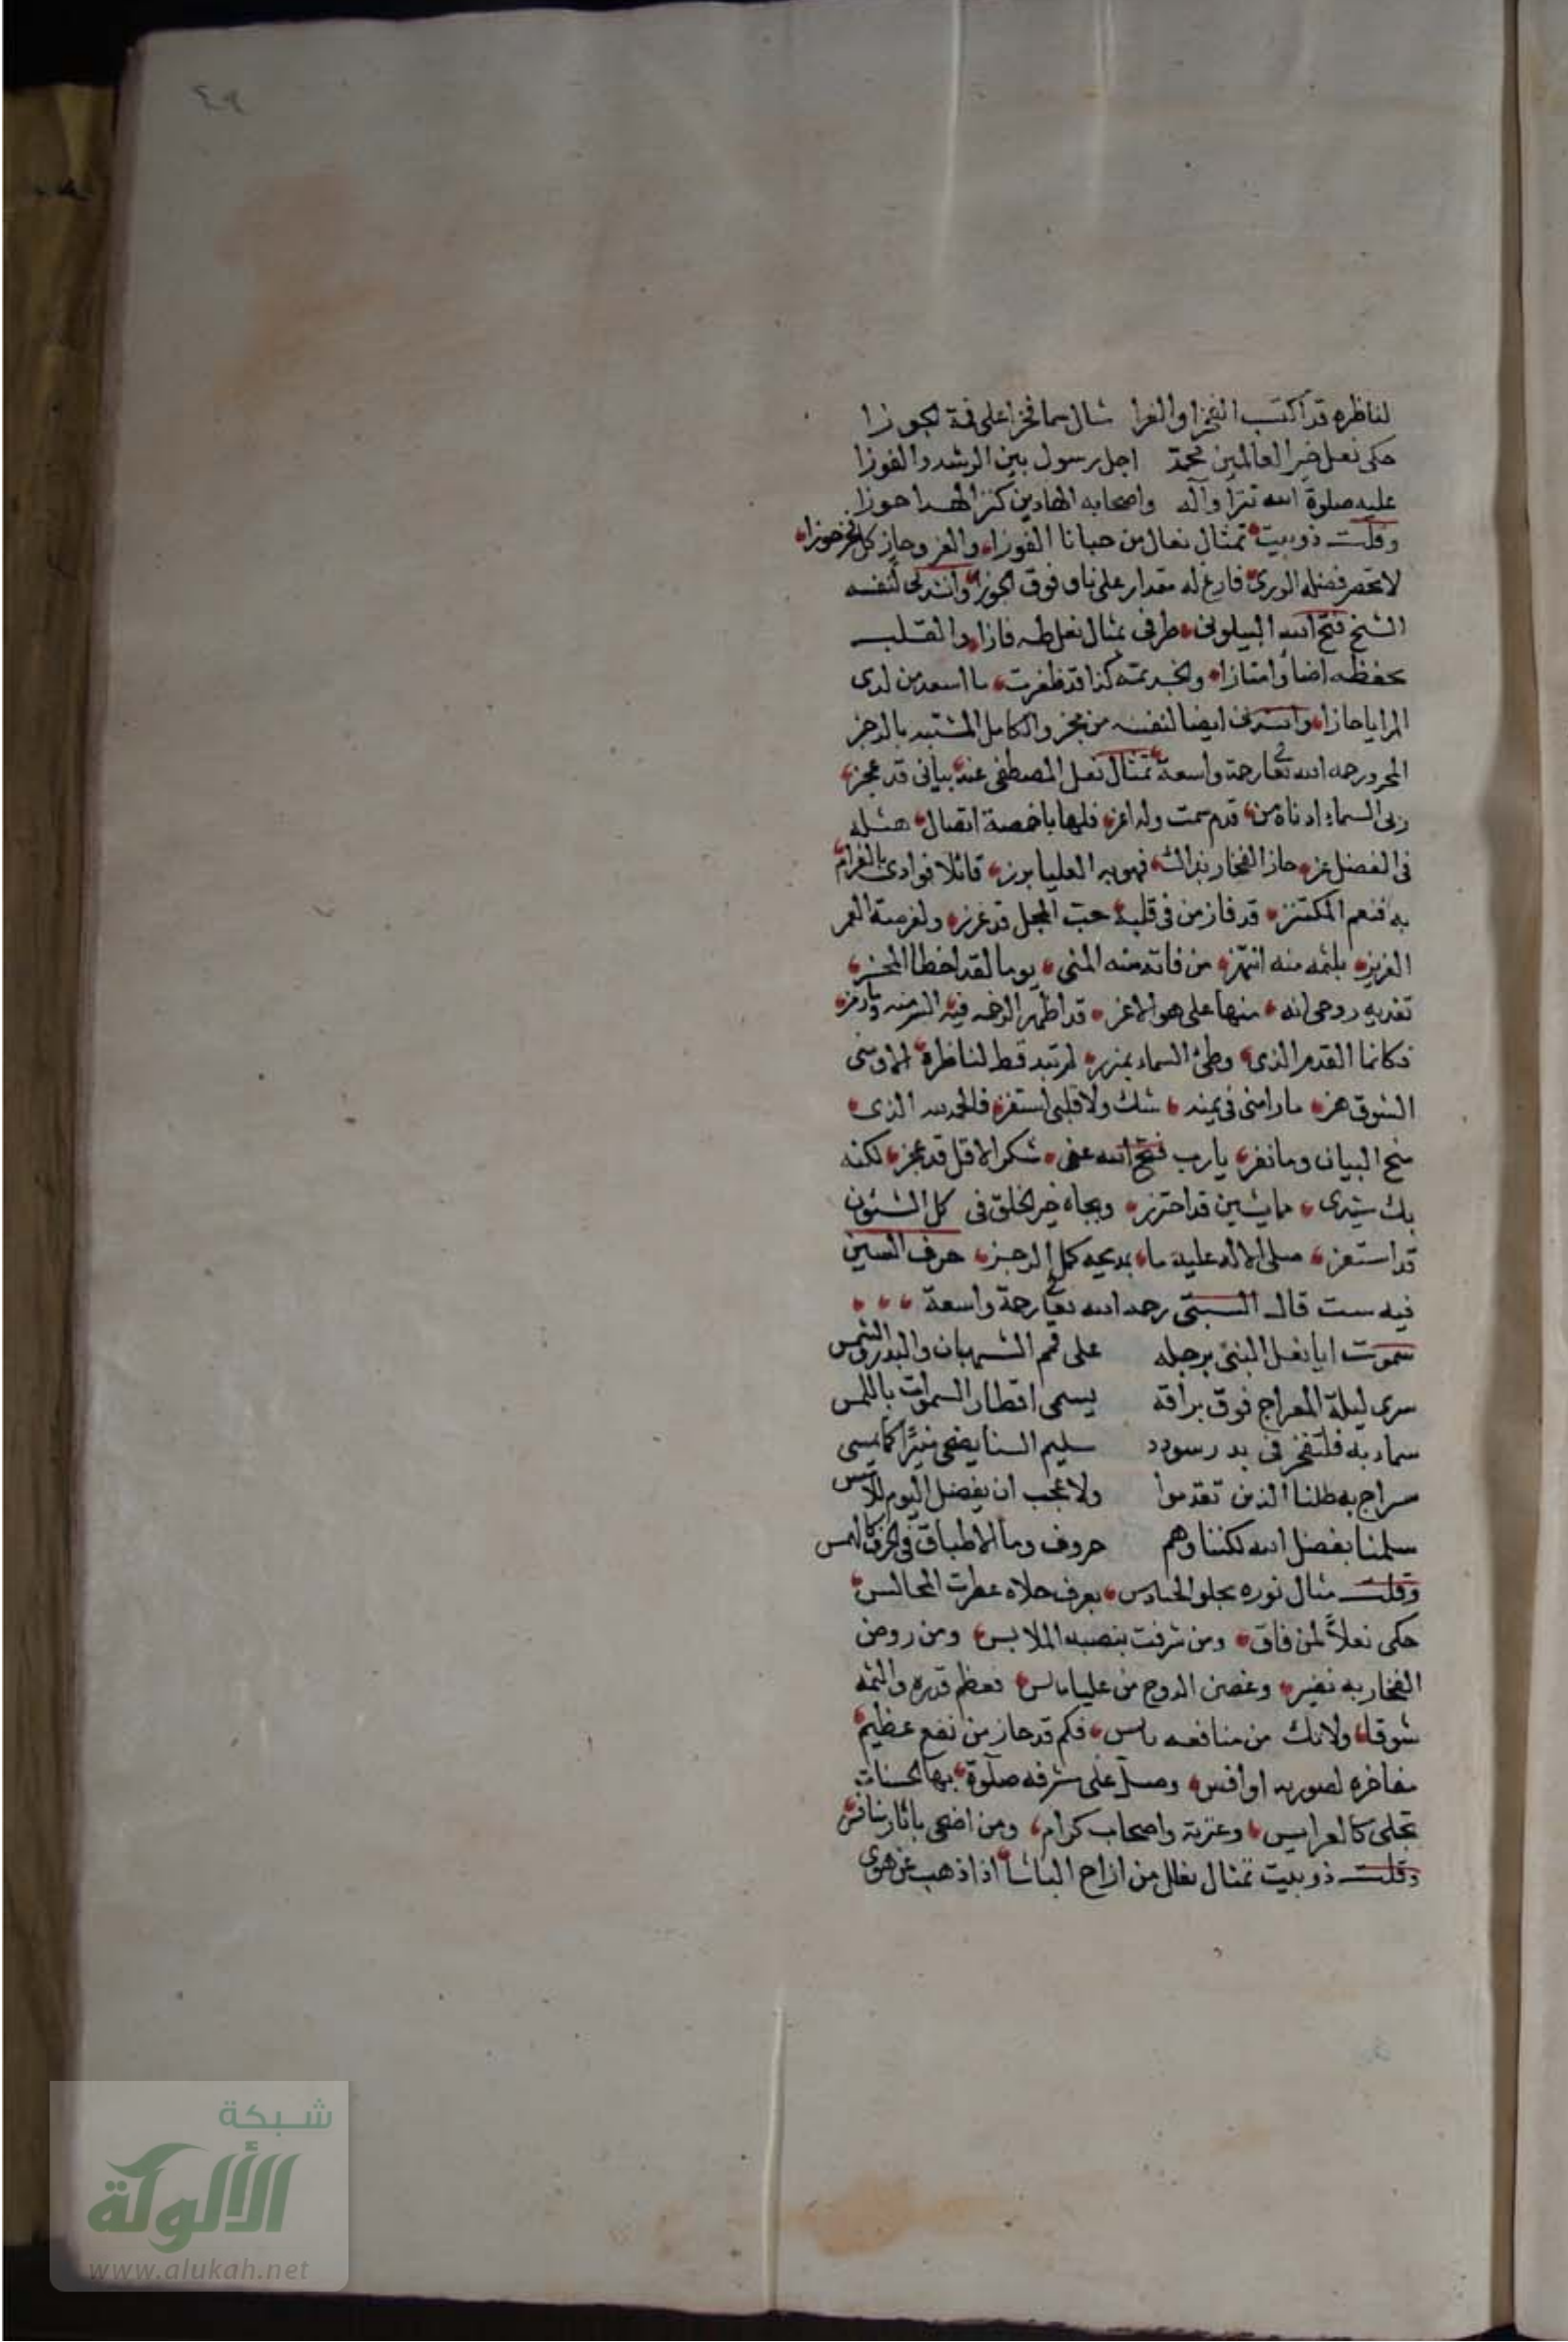 ٤٩
لناظره قد اكتب الفخرا والعزا مثال سما فخرا على قمة الجوزا
حكى نعل خير العالمين محمد اجل رسول بين الرشد والفوزا
عليه صلوة الله تترا وآله واصحابه الهادين كنز الهدا حوزا
وقلت ذوبيت تمثال نعال من حبانا الفوزا والعز وحاز كل فخر حوزا
لا تحصر فضله الورى فارغ له مقدار على ناف فوق الجوزا وانشدنى لنفسه
الشيخ فتح الله البيلونى طرفى بمثال نعل طه فازا والقلب
بحفظه اضا وامتازا والخد بمثه كذا قد ظفرت ما اسعد من لدى
المزايا حازا وانشدنى ايضا لنفسه من مجزو الكامل المشتبه بالرجز
المحرو رحمه الله تعالى رحمة واسعة تمثال نعل المصطفى عنه بيانى قد عجز
زى السماء ادناه من قدم سمت وله اعز فلها باخمصة اتصال مثله
فى الفضل عز حاز الفخار بذاك فهو به العليا برز قائلا فوادى بالغرام
به فنعم المكتنز قد فاز من فى قلبه حب المجل قد غرز ولفرصة العمر
العزيز بلثمه منه انتهز من فاته منه المنى يوما لقد اخطا المحز
تفديه روحى انه منها على هو الاعز قد اظهر الرخمه فيه السر منه وبارمز
فكانما القدم الذى وطئ السماء بمزيز لم تبد قط لناظره الا وبى
الشوق هز ما رامنى فى يمنه شك ولا قلبى استفز فالحمد لله الذى
منح البيان وما نفز يا رب فتح الله عنى شكر الاقل قد عجز لكنه
بك سيدى مما يشين قد احترز وبجاه خير الخلق فى كل الشئون
قد استعز صلى الاله عليه ما بمديحه كمل الرجز حرف السين
فيه ست قال السبتى رحمه الله تعالى رحمة واسعة
سموت ايا نعل النبى برجله على قمم الشهبان والبدر والشمس
سرى ليلة المعراج فوق براقه يسمى اقطار السموات باللمس
سما ربه فلتفخر فى بدر سودد سليم السنا يضحى منيرًا كما يمسى
سراج به طلنا الذين تقدموا ولا عجب ان يفضل اليوم للامس
سلمنا بفضل الله لكننا وهم حروف وما الاطباق فى الحرف كالهمس
وقلت مثال نوره يجلو الحنادس بعرف حلاه عطرت المجالس
حكى نعلاً لمن فاق ومن شرفت بنصبه الملابس ومن روض
الفخار به نضير وغصن الدوح من عليا مايس فعظم قدره والثمه
شوقا ولا تك من منافعه يايس فكم قد حاز من نفع عظيم
مفاخره لصوريه اوافس وصل على مشرفه صلوة بها الحسنات
تجلى كالعرايس وعترة واصحاب كرام ومن اضحى باثار ينافس
وقلت ذوبيت تمثال نعل من ازاح الباسا اذ اذهب عن هوى
شبكة
الألوكة
www.alukah.net